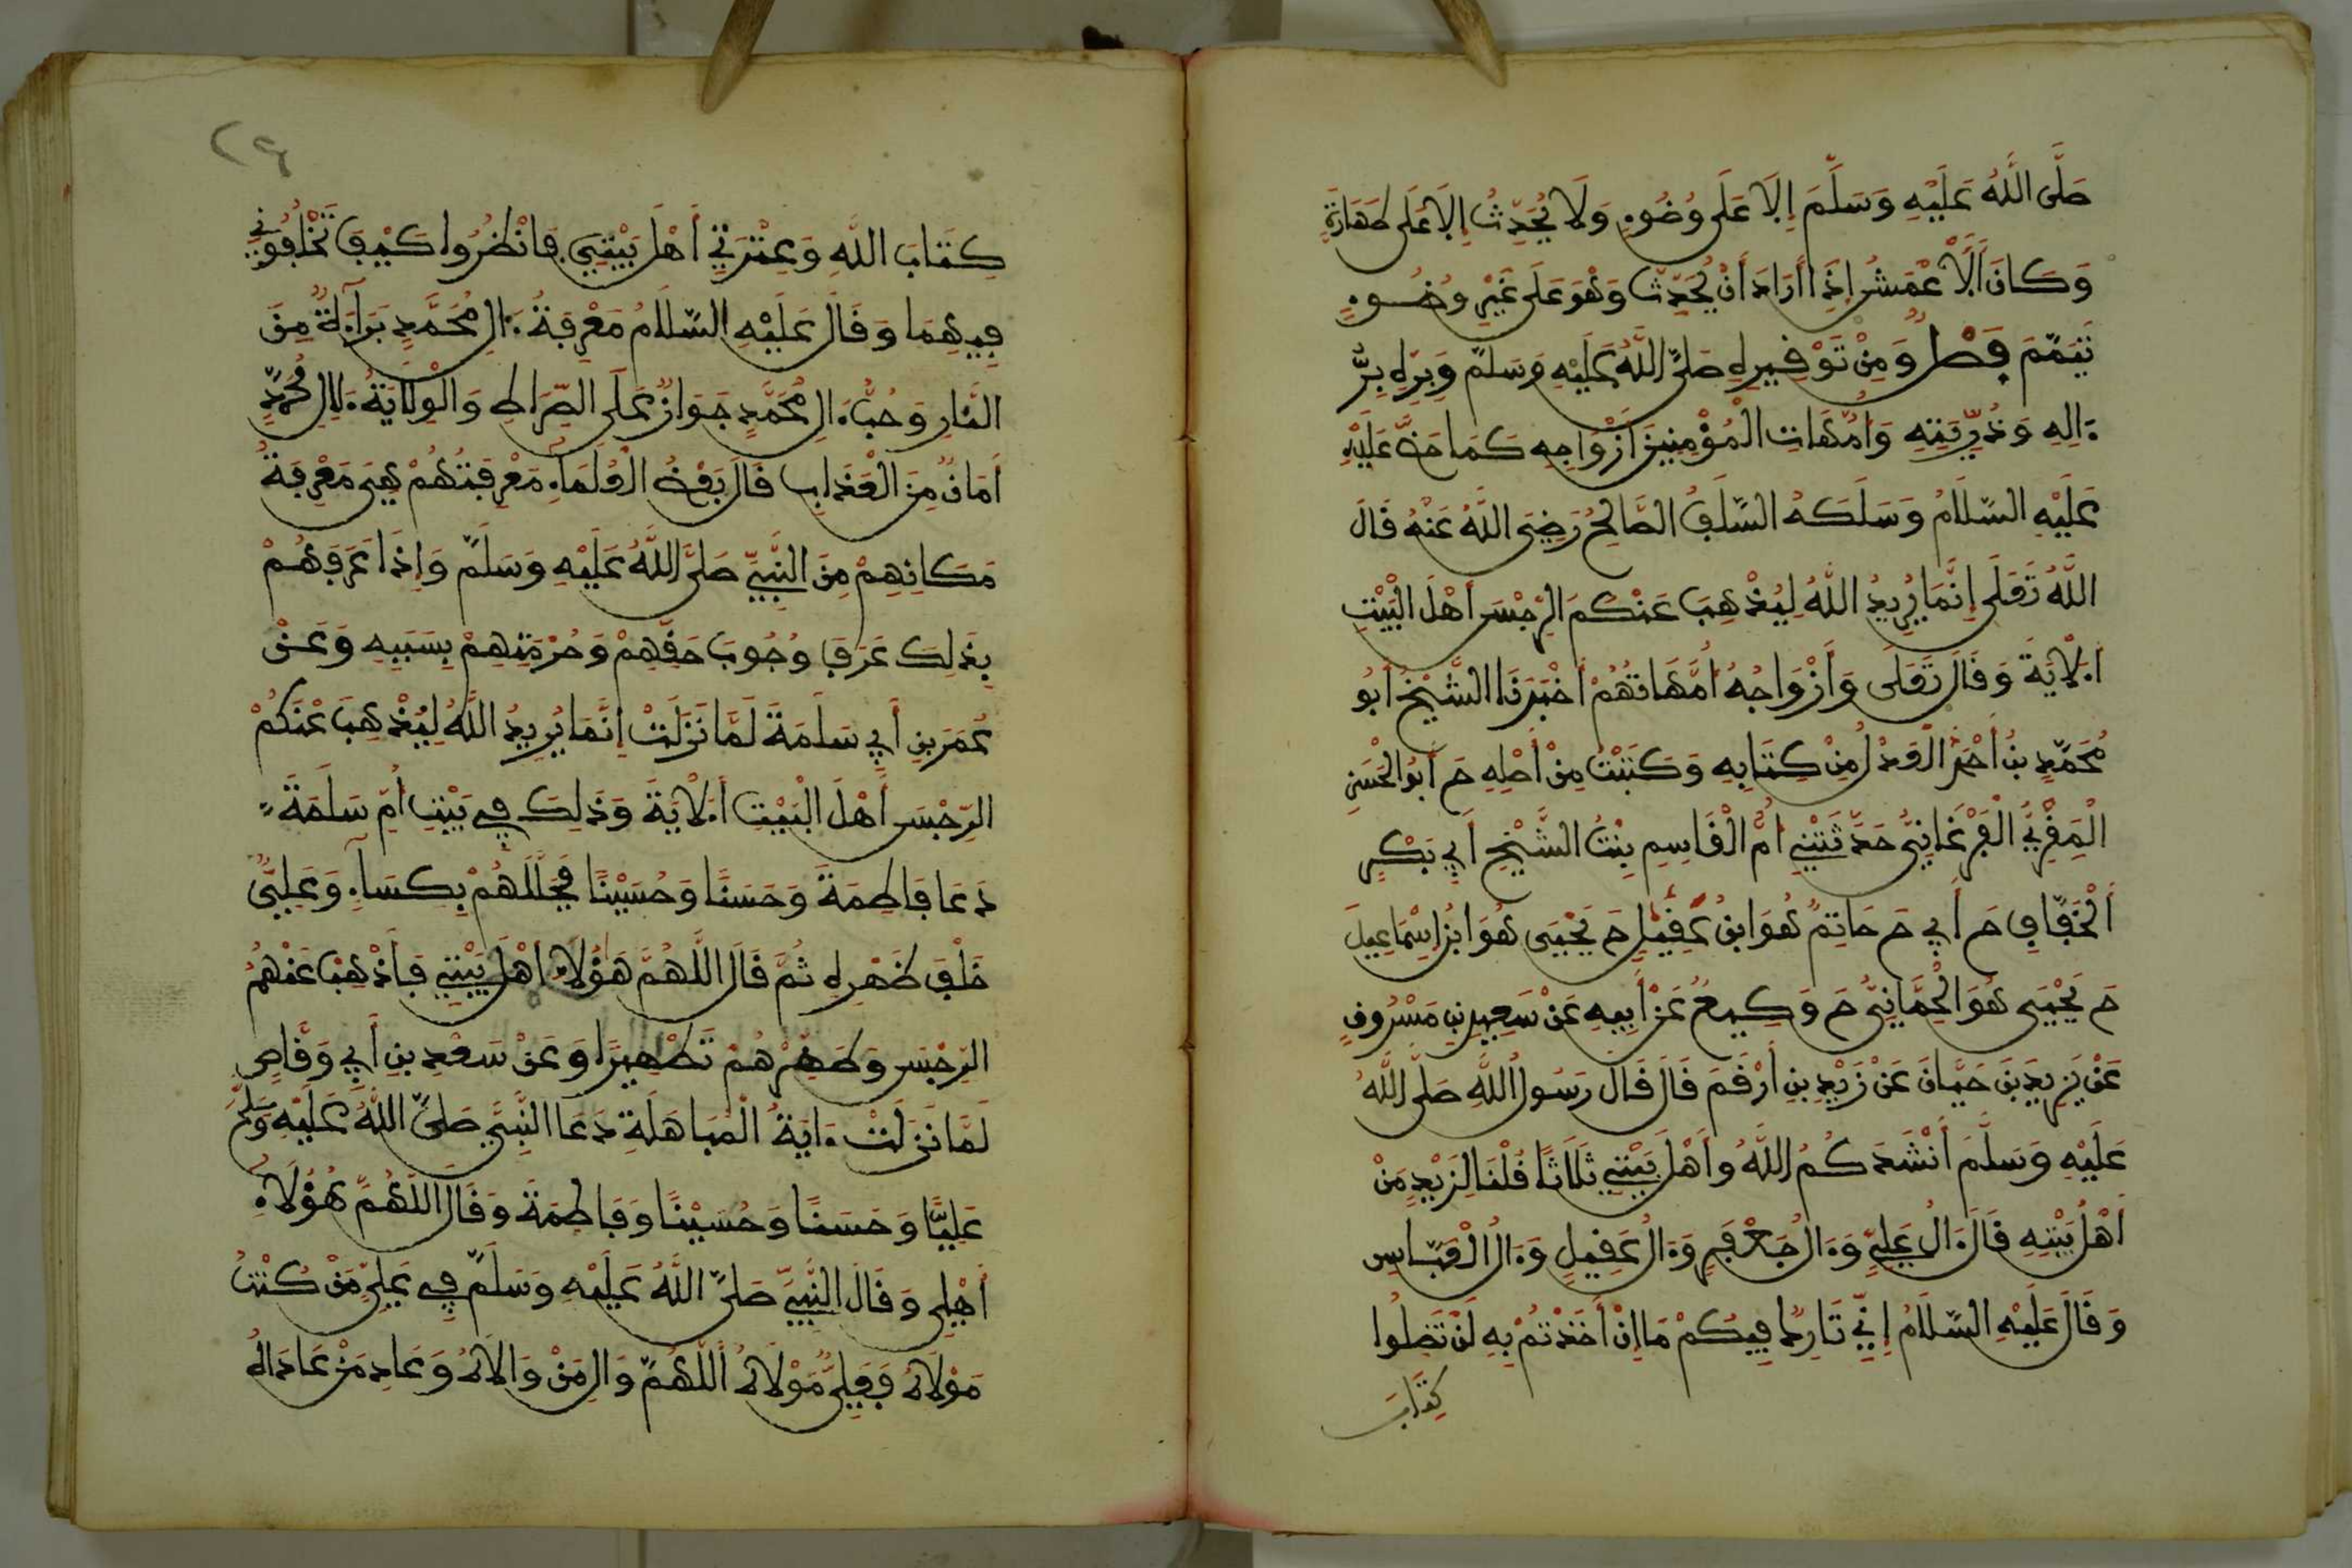 صَلَّى اللَّهُ عَلَيْهِ وَسَلَّمَ إِلَّا عَلَى وُضُوءٍ وَلَا يُحَدِّثُ إِلَّا عَلَى طَهَارَةٍ
وَكَانَ الْأَعْمَشُ إِذَا أَرَادَ أَنْ يُحَدِّثَ وَهْوَ عَلَى غَيْرِ وُضُوءٍ
تَيَمَّمَ فَصْلٌ وَمِنْ تَوْقِيرِهِ صَلَّى اللَّهُ عَلَيْهِ وَسَلَّمَ وَبِرِّهِ بِرُّ
ءَالِهِ وَذُرِّيَّتِهِ وَأُمَّهَاتِ الْمُؤْمِنِينَ أَزْوَاجِهِ كَمَا حَضَّ عَلَيْهِ
عَلَيْهِ السَّلَامُ وَسَلَكَهُ السَّلَفُ الصَّالِحُ رَضِيَ اللَّهُ عَنْهُ قَالَ
اللَّهُ تَعَلَى إِنَّمَا يُرِيدُ اللَّهُ لِيُذْهِبَ عَنْكُمُ الرِّجْسَ أَهْلَ الْبَيْتِ
الْأَيَةَ وَقَالَ تَعَلَى وَأَزْوَاجُهُ أُمَّهَاتُهُمْ أَخْبَرَنَا الشَّيْخُ أَبُو
مُحَمَّدِ بْنُ أَحْمَدَ الْعَدْلُ مِنْ كِتَابِهِ وَكَتَبْتُ مِنْ أَصْلِهِ حَ أَبُو الْحَسَنِ
الْمُقْرِيُّ الْفَرْغَانِيُّ حَدَّثَتْنِي أُمُّ الْقَاسِمِ بِنْتُ الشَّيْخِ أَبِي بَكْرٍ
الْخَفَّافِ حَ أَبِي حَ حَاتِمٌ هُوَ ابْنُ عَقِيلٍ حَ يَحْيَى هُوَ ابْنُ إِسْمَاعِيلَ
حَ يَحْيَى هُوَ الْحِمَّانِيُّ حَ وَكِيعٌ عَنْ أَبِيهِ عَنْ سَعِيدِ بْنِ مَسْرُوقٍ
عَنْ يَزِيدَ بْنِ حَيَّانَ عَنْ زَيْدِ بْنِ أَرْقَمَ قَالَ قَالَ رَسُولُ اللَّهِ صَلَّى اللَّهُ
عَلَيْهِ وَسَلَّمَ أَنْشُدُكُمُ اللَّهَ وَأَهْلَ بَيْتِي ثَلَاثًا قُلْنَا لِزَيْدٍ مَنْ
أَهْلُ بَيْتِهِ قَالَ ءَالُ عَلِيٍّ وَءَالُ جَعْفَرٍ وَءَالُ عَقِيلٍ وَءَالُ الْعَبَّاسِ
وَقَالَ عَلَيْهِ السَّلَامُ إِنِّي تَارِكٌ فِيكُمْ مَا إِنْ أَخَذْتُمْ بِهِ لَنْ تَضِلُّوا
كِتَابَ
٢٩
كِتَابَ اللَّهِ وَعِتْرَتِي أَهْلَ بَيْتِي فَانْظُرُوا كَيْفَ تَخْلُفُونِي
فِيهِمَا وَقَالَ عَلَيْهِ السَّلَامُ مَعْرِفَةُ ءَالِ مُحَمَّدٍ بَرَاءَةٌ مِنَ
النَّارِ وَحُبُّ ءَالِ مُحَمَّدٍ جَوَازٌ عَلَى الصِّرَاطِ وَالْوِلَايَةُ لِآلِ مُحَمَّدٍ
أَمَانٌ مِنَ الْعَذَابِ قَالَ بَعْضُ الْعُلَمَاءِ مَعْرِفَتُهُمْ هِيَ مَعْرِفَةُ
مَكَانِهِمْ مِنَ النَّبِيِّ صَلَّى اللَّهُ عَلَيْهِ وَسَلَّمَ وَإِذَا عَرَفَهُمْ
بِذَلِكَ عَرَفَ وُجُوبَ حَقِّهِمْ وَحُرْمَتِهِمْ بِسَبَبِهِ وَعَنْ
عُمَرَ بْنِ أَبِي سَلَمَةَ لَمَّا نَزَلَتْ إِنَّمَا يُرِيدُ اللَّهُ لِيُذْهِبَ عَنْكُمُ
الرِّجْسَ أَهْلَ الْبَيْتِ الْأَيَةَ وَذَلِكَ فِي بَيْتِ أُمِّ سَلَمَةَ
دَعَا فَاطِمَةَ وَحَسَنًا وَحُسَيْنًا فَجَلَّلَهُمْ بِكِسَاءٍ وَعَلِيٌّ
خَلْفَ ظَهْرِهِ ثُمَّ قَالَ اللَّهُمَّ هَؤُلَاءِ أَهْلُ بَيْتِي فَأَذْهِبْ عَنْهُمُ
الرِّجْسَ وَطَهِّرْهُمْ تَطْهِيرًا وَعَنْ سَعْدِ بْنِ أَبِي وَقَّاصٍ
لَمَّا نَزَلَتْ ءَايَةُ الْمُبَاهَلَةِ دَعَا النَّبِيُّ صَلَّى اللَّهُ عَلَيْهِ وَسَلَّمَ
عَلِيًّا وَحَسَنًا وَحُسَيْنًا وَفَاطِمَةَ وَقَالَ اللَّهُمَّ هَؤُلَاءِ
أَهْلِي وَقَالَ النَّبِيُّ صَلَّى اللَّهُ عَلَيْهِ وَسَلَّمَ فِي عَلِيٍّ مَنْ كُنْتُ
مَوْلَاهُ فَعَلِيٌّ مَوْلَاهُ اللَّهُمَّ وَالِ مَنْ وَالَاهُ وَعَادِ مَنْ عَادَاهُ